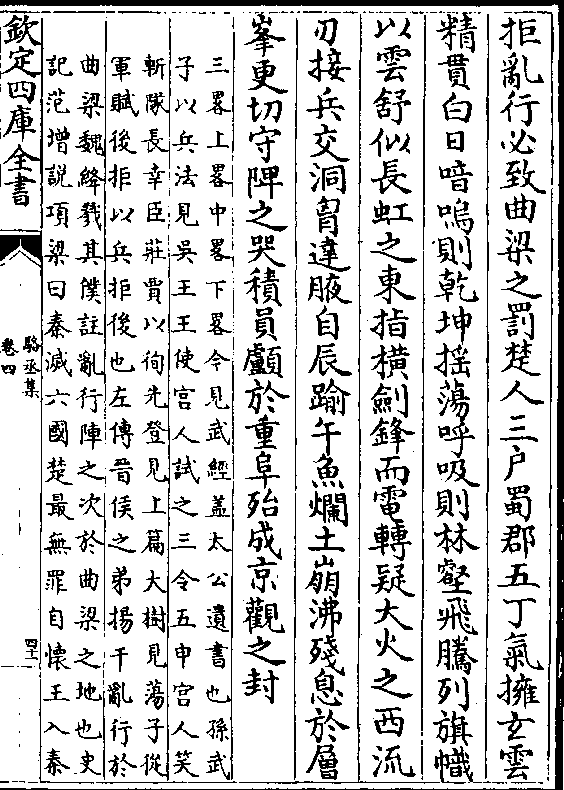 拒亂行必致曲梁之罰楚人三户蜀郡五丁氣擁玄雲
精貫白日喑嗚則乾坤揺蕩呼吸則林壑飛騰列旗幟
以雲舒似長虹之東指横劍鋒而電轉疑大火之西流
刃接兵交洞胷達腋自辰踰午魚爛土崩沸殘息於層
峯更切守陴之哭積員顱於重阜殆成京觀之封
三畧上畧中畧下畧今見武經葢太公遺書也孫武
子以兵法見吳王王使宫人試之三令五申宫人笑
斬隊長幸臣莊賈以徇先登見上篇大樹見蕩子從
軍賦後拒以兵拒後也左傳晉侯之弟揚干亂行於
曲梁魏絳戮其僕註亂行陣之次於曲梁之地也史
記范增説項梁曰秦滅六國楚最無罪自懷王入秦
欽定四庫全書
駱丞集
卷四